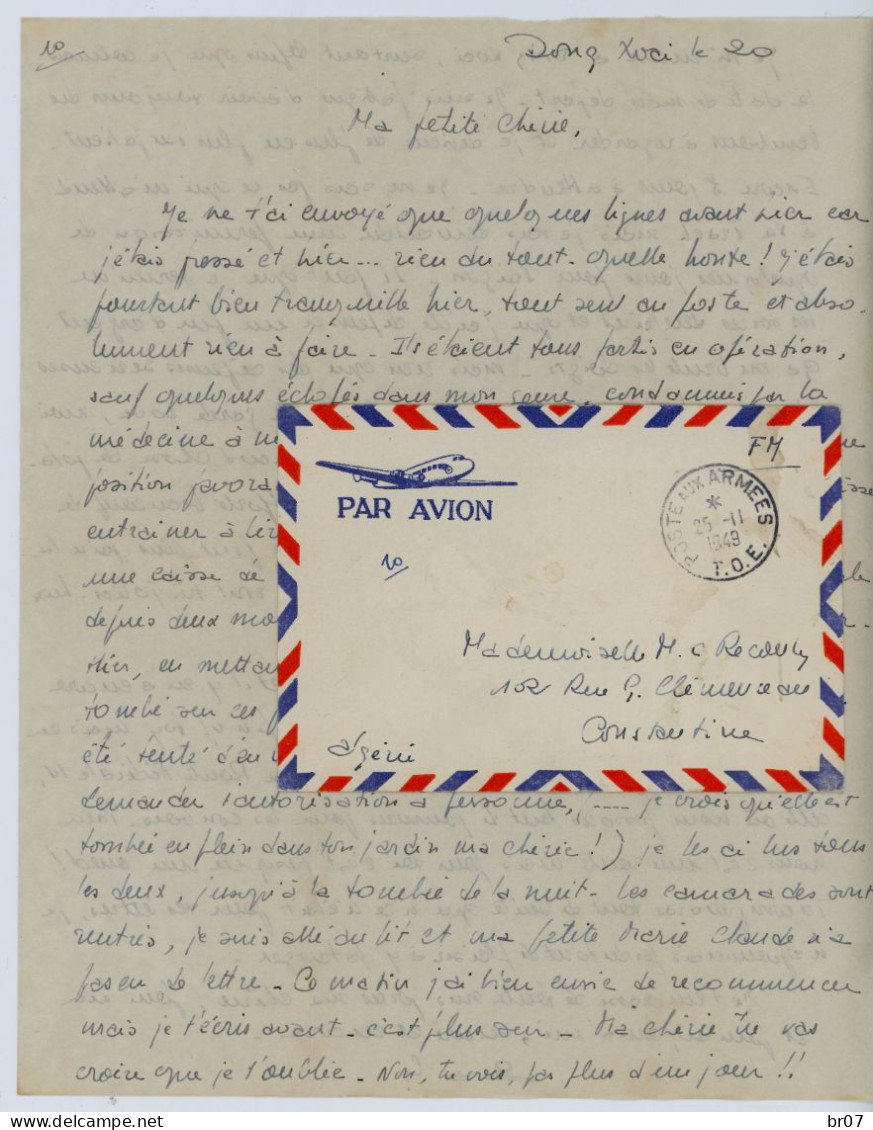 10
Dong Xoai le 20
Ma petite Chérie,
Je ne t'ai envoyé que quelques lignes avant hier car
j'étais pressé et hier... rien du tout. quelle honte ! j'étais
pourtant bien tranquille hier, tout seul au poste et abso.
lument rien à faire - Ils étaient tous partis en opération,
sauf quelques éclopés dans mon genre, condamnés par la
médecine à
position favora
entrainer à tir
une caisse de
depuis deux mo
Hier, en mettan
tombé sur ces
été tenté d'en
demander l'autorisation à personne, (---- je crois qu'elle est
tombée en plein dans ton jardin ma chérie !) je les ai lus tous
les deux, jusqu'à la tombée de la nuit - les camarades sont
rentrés, je suis allé au lit et ma petite Marie Claude n'a
pas eu de lettre - Ce matin j'ai bien envie de recommencer
mais je t'écris avant - c'est plus sur - Ma chérie tu vas
croire que je t'oublie - Non, tu vois, pas plus d'un jour !!
PAR AVION
FM
POSTE AUX ARMEES
*
25 -11
1949
T.O.E.
10
Mademoiselle M. C Recouly
102 Rue G. Clémenceau
Constantine
Algérie
br07